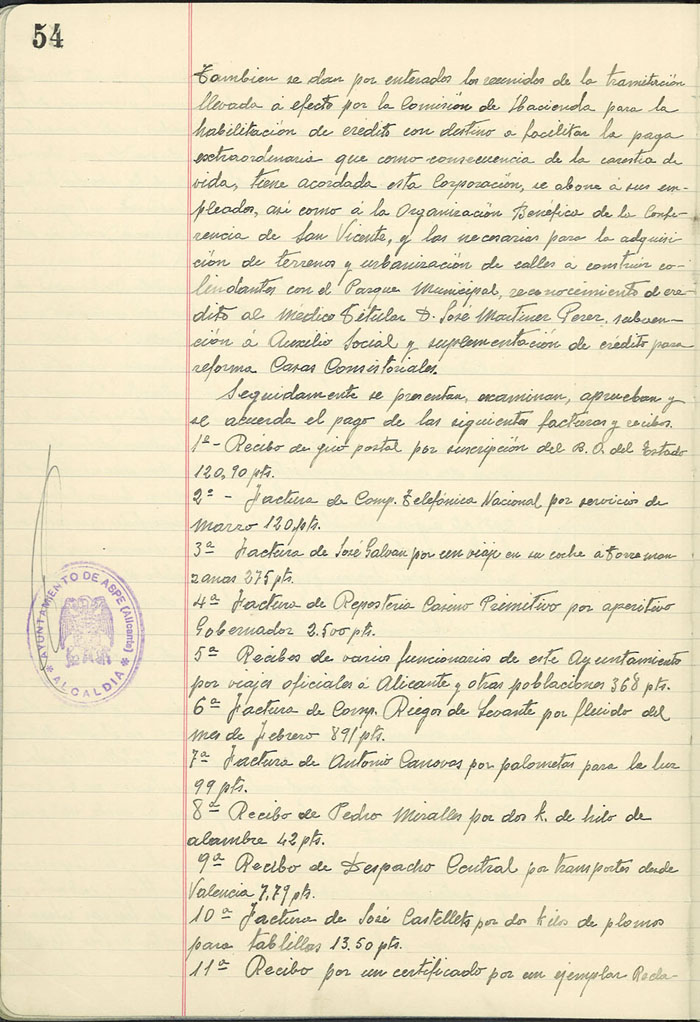 54
Tambien se dan por enterados los reunidos de la tramitación
llevada á efecto por la Comisión de Hacienda para la
habilitación de credito con destino a facilitar la paga
extraordinaria que como consecuencia de la carestia de
vida, tiene acordada esta Corporación, se abone á sus em-
pleados, así como á la Organización Benéfica de la Confe-
rencia de San Vicente, y las necesarias para la adquisi
ción de terrenos y urbanización de calles á construir co-
lindantes con el Parque Municipal, reconocimiento de cre-
dito al Médico Titular D. José Martinez Perez, subven-
ción á Auxilio Social y suplementación de crédito para
reforma Casas Consistoriales.
Seguidamente se presentan, examinan, aprueban y
se acuerda el pago de las siguientes facturas y recibos.
1ª - Recibo de giro postal por suscripción del B.O. del Estado
120,90 pts.
2ª - Factura de Comp. Telefónica Nacional por servicios de
Marzo 120, pts.
3ª Factura de José Galvan por un viaje en su coche á Torreman
zanas 275 pts.
4ª Factura de Reposteria Casino Primitivo por aperitivo
Gobernador 2.500 pts.
5ª Recibos de varios funcionarios de este Ayuntamiento
por viajes oficiales á Alicante y otras poblaciones 368 pts.
6ª Factura de Comp. Riegos de Levante por fluido del
mes de Febrero 891 pts.
7ª Factura de Antonio Canovas por palometas para la luz
99 pts.
8ª Recibo de Pedro Miralles por dos k. de hilo de
alambre 42 pts.
9ª Recibo de Despacho Central por transportes desde
Valencia 7,79 pts.
10ª Factura de José Castellets por dos kilos de plomos
para tablillas 13.50 pts.
11ª Recibo por un certificado por un ejemplar Recla-
AYUNTAMIENTO DE ASPE (Alicante)
* ALCALDÍA *